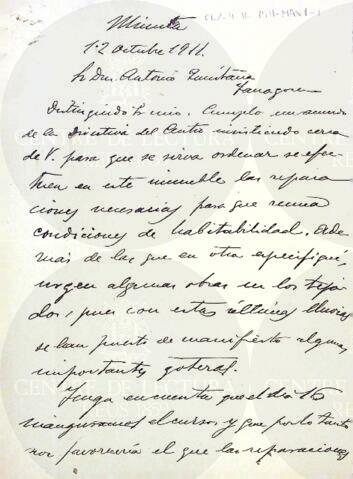 Minuta
12 Octubre 1911.
Sr Don Antonio Quintana
Tarragona
Distinguido Sr mio. Cumplo un acuerdo
de la Directiva del Centro insistiendo cerca
de V. para que se sirva ordenar se efec
tuen en este inmueble las repara
ciones necesarias para que reuna
condiciones de habitabilidad. Ade
más de las que en otra especifiqué,
urgen algunas obras en los teja
dos, pues con estas últimas lluvias
se han puesto de manifiesto algunas
importantes goteras.
Tenga en cuenta que el día 15
inauguramos el curso y que por lo tanto
nos favorecería el que las reparaciones
CENTRE DE LECTURA
CENTRE DE LECTURA
REUS 1859